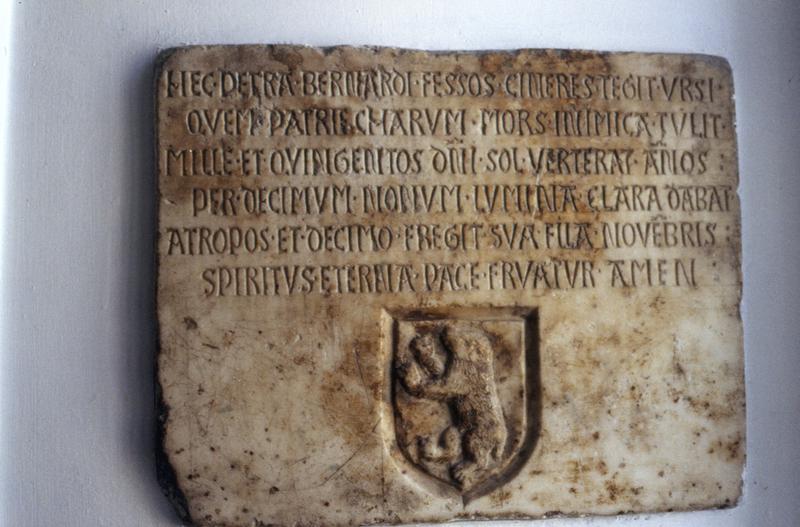 HEC·PETRA·BERNARDI·FESSOS·CINERES·TEGIT·VRSI·
QVEM·PATRIE·CHARVM·MORS·INIMICA·TVLIT·
MILLE·ET·QVINGENTOS·DN̄I·SOL·VERTERAT·AN̄OS:
PER·DECIMVM·NONVM·LVMINA·CLARA·DABAT
ATROPOS·ET·DECIMO·FREGIT·SVA·FILA·NOVĒBRIS:
SPIRITVS·ETERNA·PACE·FRVATVR·AMEN: